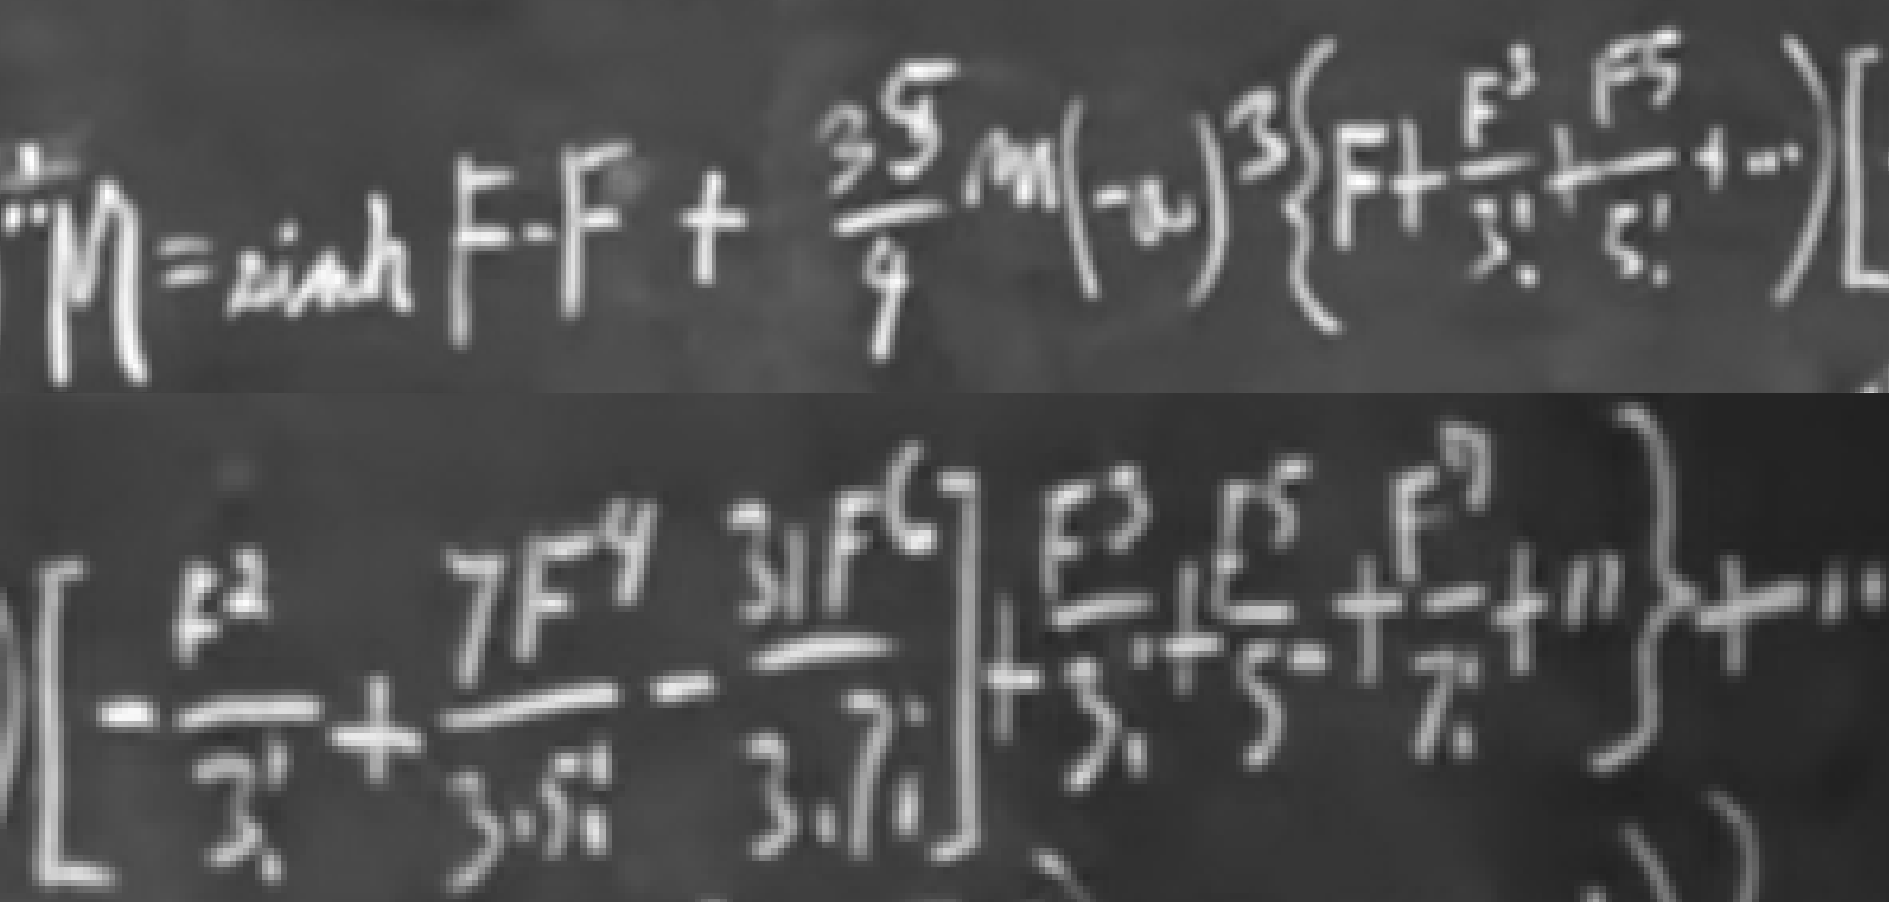 ∴ M = sinh F - F + 35/9 m(-a)³{F + F³/3! + F⁵/5! + ...)[
)[- F²/3! + 7F⁴/3·5! - 31F⁶/3·7!] + F³/3! + F⁵/5 + F⁷/7! + ...} + ...